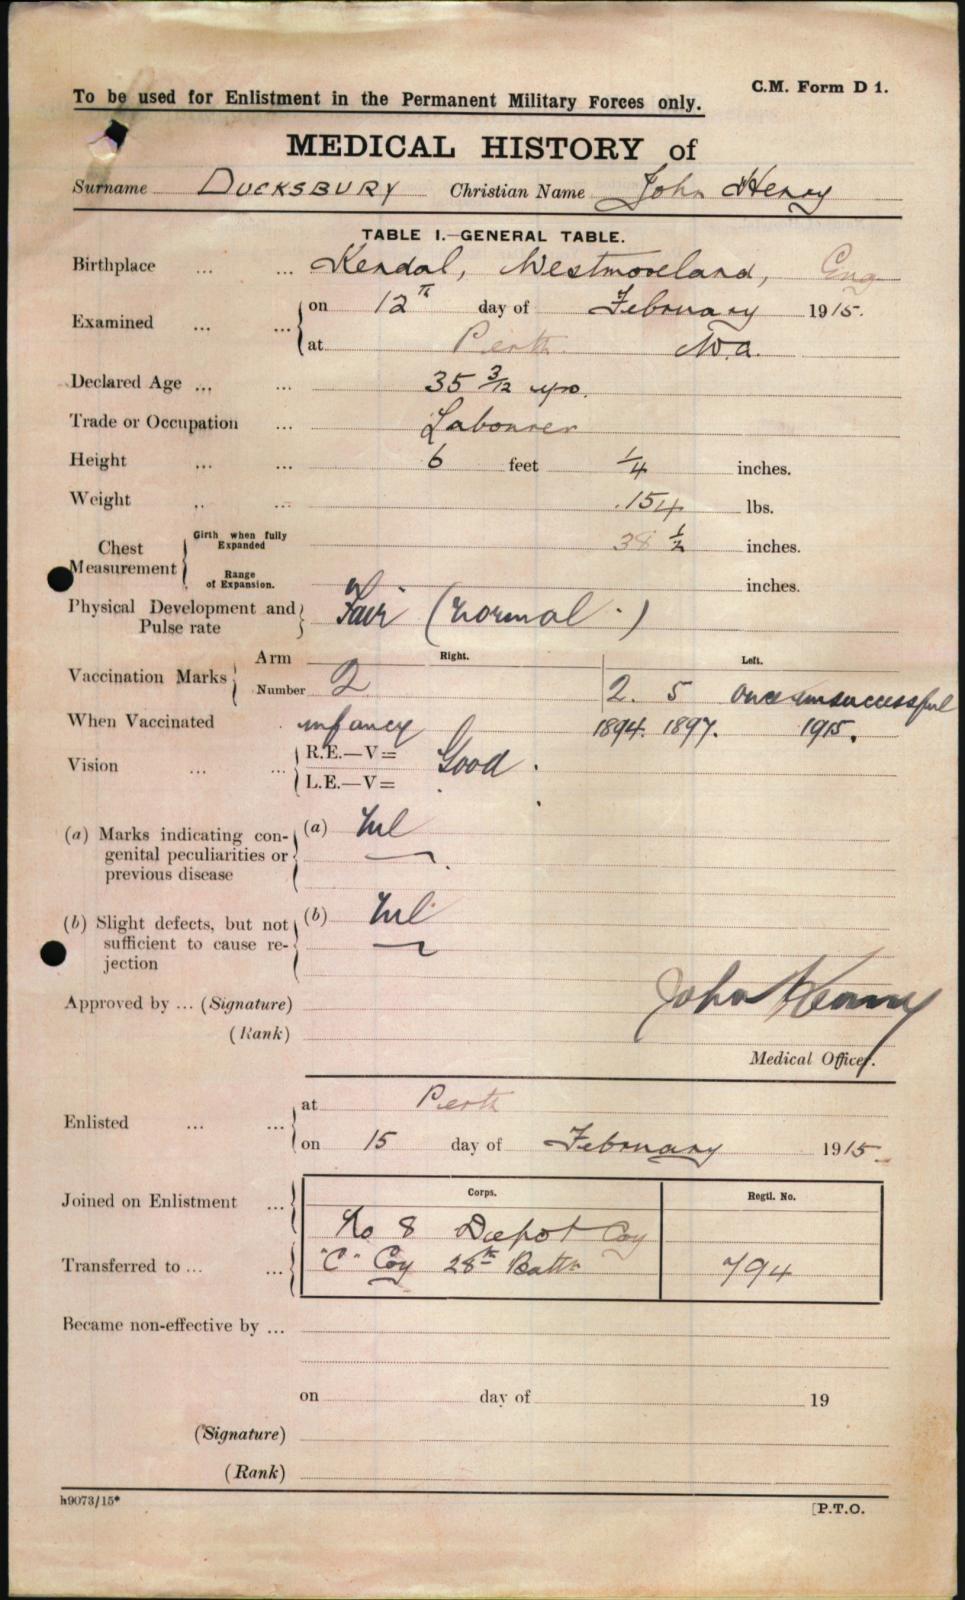 C.M. Form D 1.
To be used for Enlistment in the Permanent Military Forces only.
MEDICAL HISTORY of
Surname DUCKSBURY Christian Name John Henry
TABLE I.—GENERAL TABLE.
Birthplace ... ... Kendal, Westmoreland, Eng
Examined ... ... on 12th day of February 1915.
at Perth W.a.
Declared Age ... ... 35 3/12 yrs.
Trade or Occupation ... Labourer
Height ... ... 6 feet 1/4 inches.
Weight .. ... 154 lbs.
Chest Measurement Girth when fully Expanded 38 1/2 inches.
Range of Expansion. inches.
Physical Development and Pulse rate Fair (normal.)
Vaccination Marks Arm Right. Left.
Number 2 2. 5 once unsuccessful
When Vaccinated infancy 1894. 1897. 1915.
Vision ... ... R.E.—V= Good.
L.E.—V=
(a) Marks indicating con- (a) Nil
genital peculiarities or
previous disease
(b) Slight defects, but not (b) Nil
sufficient to cause re-
jection
Approved by ... (Signature) John Kenny
(Rank)
Medical Officer.
Enlisted ... ... at Perth
on 15 day of February 1915.
Corps. Regtl. No.
Joined on Enlistment ... No 8 Depot Coy
Transferred to ... ... "C" Coy 28th Battn 794
Became non-effective by ...
on day of 19
(Signature)
(Rank)
h9073/15*
[P.T.O.